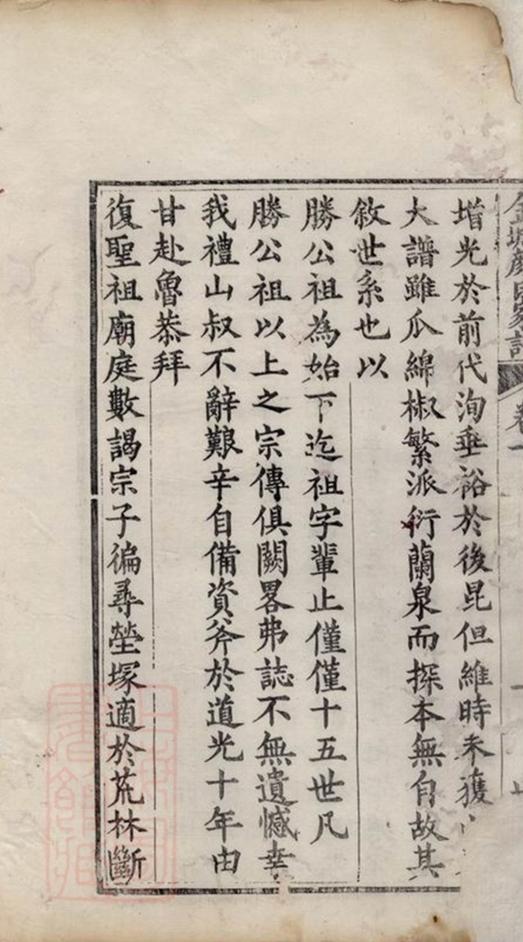 顏氏家譜
卷一
增光於前代洵垂裕於後昆但維時未獲
大譜雖瓜綿椒繁派衍蘭泉而探本無自故其
敘世系也以
勝公祖為始下迄祖字輩止僅僅十五世凡
勝公祖以上之宗傳俱闕畧弗誌不無遺憾幸
我禮山叔不辭艱辛自備資斧於道光十年由
甘赴魯恭拜
復聖祖廟庭數謁宗子徧尋塋塚適於荒林斷